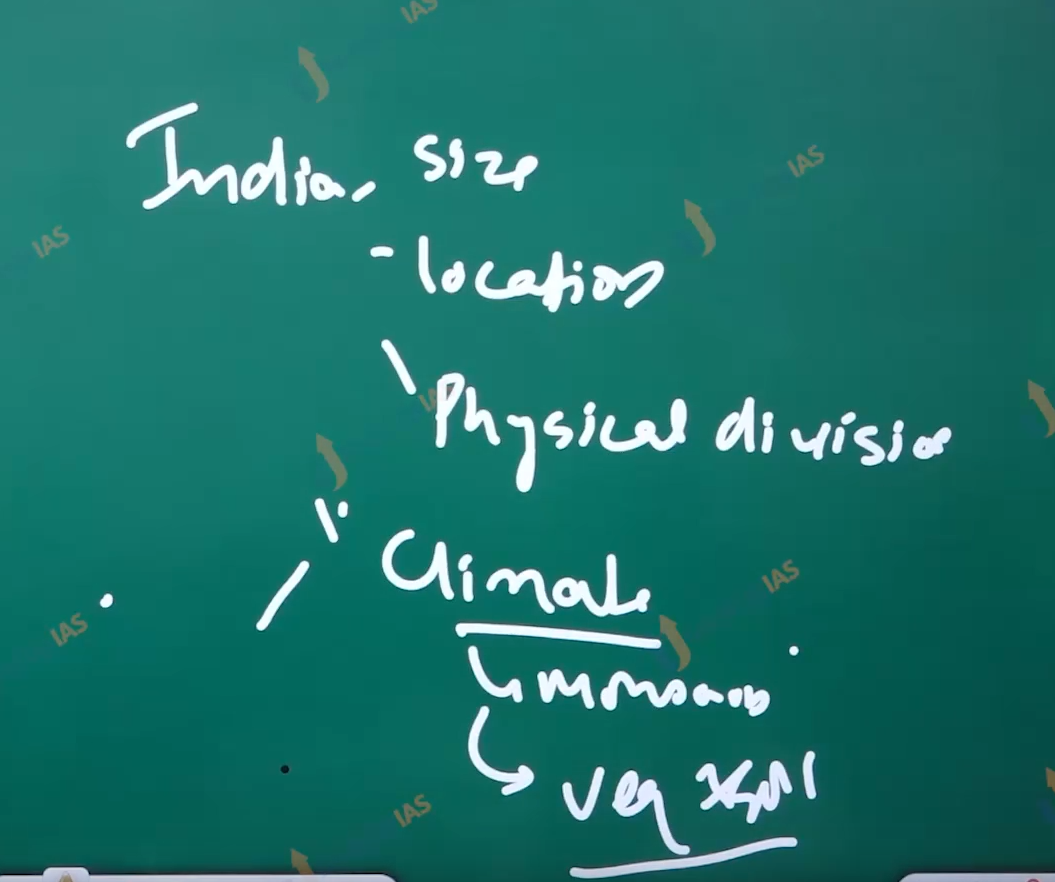 India, size
- location
Physical division
Climate
monsoon
veg
IAS
IAS
IAS
IAS
IAS
IAS